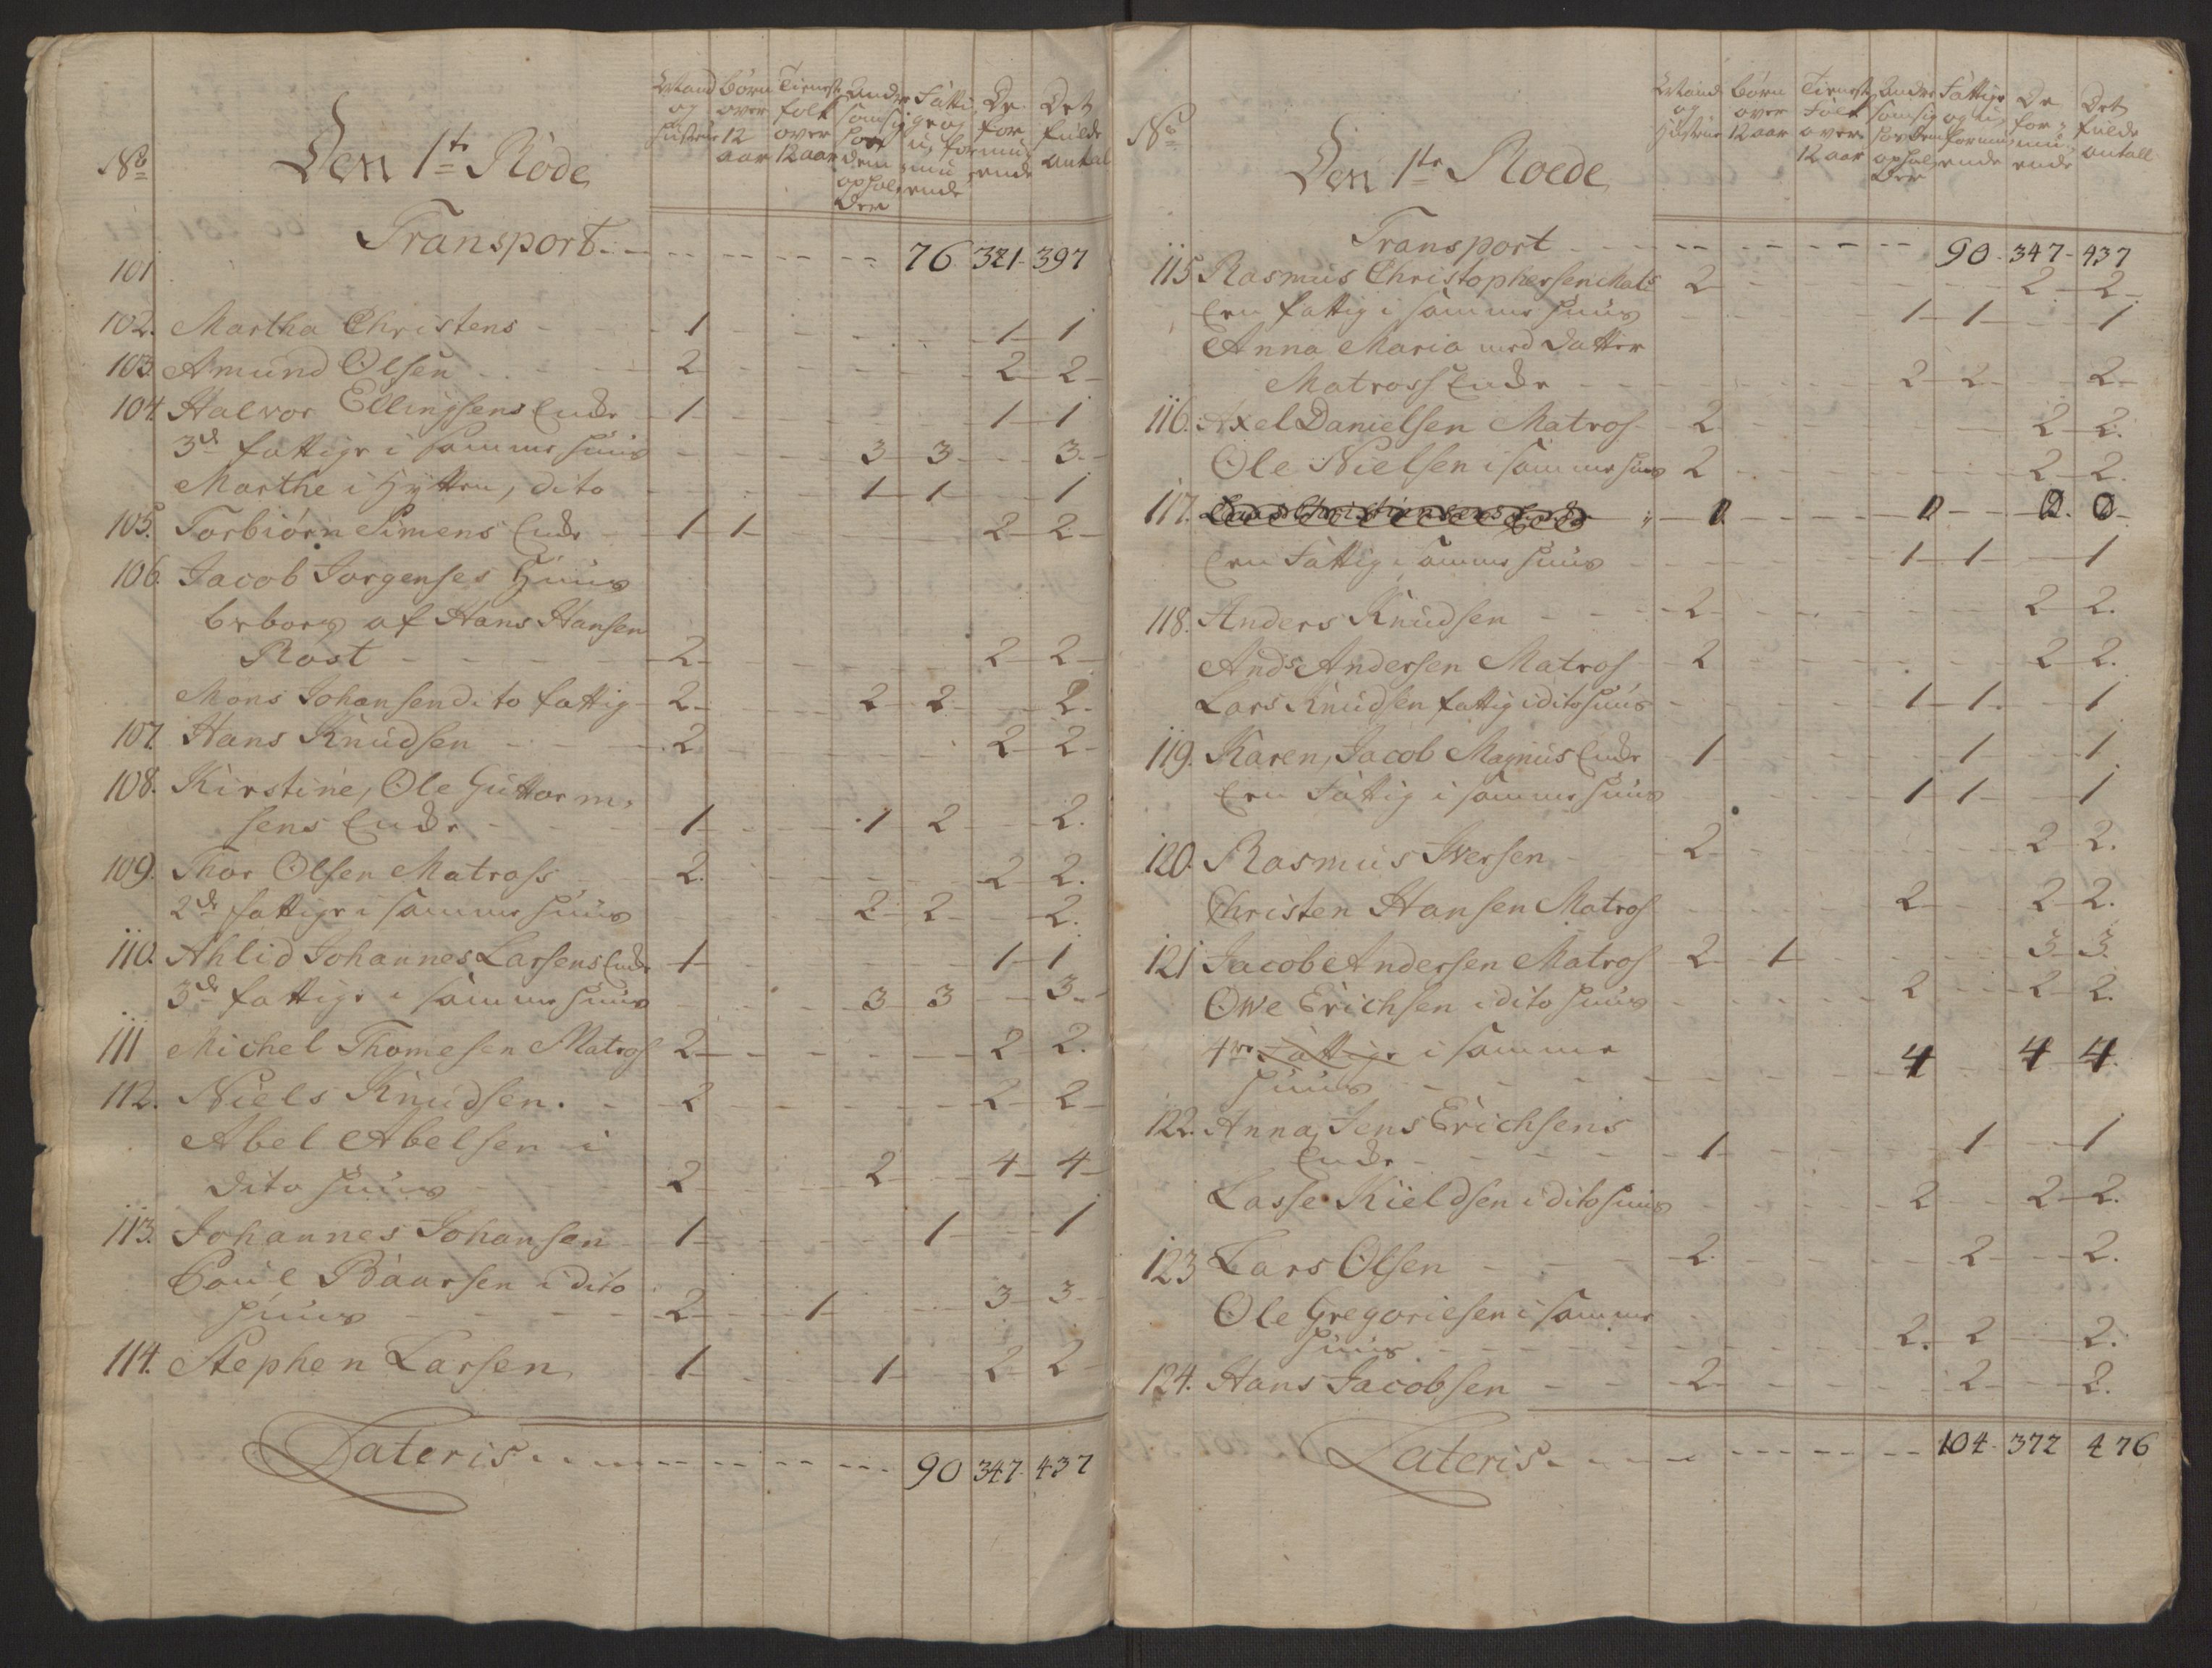 No
Den 1te Rode
Mand og Hustrue
Børn over 12 aar
Tienestfolk over 12 aar
Andre som sig hos dem opholder
Fattige og uformuende
De formuende
Det fulde antal
Transport 76 321 397
101
102. Martha Christens 1 1 1
103. Amund Olsen 2 2 2
104. Halvor Ellingsens Enke 1 1 1
3de fattige i samme Huus 3 3 3
Marthe i Hytten, dito 1 1 1
105. Torbiørn Simens Enke 1 1 2 2
106. Jacob Jorgenses Huus
beboes af Hans Hansen
Rost 2 2 2
Mons Johansen dito fattig 2 2 2 2
107. Hans Knudsen 2 2 2
108. Kirstine, Ole Guttorm-
sens Enke 1 1 2 2
109. Thor Olsen Matross 2 2 2
2de fattige i samme Huus 2 2 2
110. Ahlid Johannes Larsens Enke 1 1 1
3de fattige i samme Huus 3 3 3
111 Michel Thomesen Matros 2 2 2
112. Niels Knudsen 2 2 2
Abel Abelsen i
dito Huus 2 2 4 4
113. Johannes Johansen 1 1 1
Poul Baarsen i dito
Huus 2 1 3 3
114. Stephen Larsen 1 1 2 2
Lateris 90 347 437
No
Den 1te Roede
Mand og Hustrue
Børn over 12 aar
Tienest Folk over 12 aar
Andre som sig hos dem opholder
Fattige og uformuende
De formuende
Det fulde antall
Transport 90 347 437
115 Rasmus Christophersen Mats 2 2 2
Een fattig i samme Huus 1 1 1
Anna Maria med datter
Matross Enke 2 2 2
116. Axel Danielsen Matros 2 2 2
Ole Nielsen i samme Huus 2 2 2
117. 0 0 0 0
Een Fattig i samme Huus 1 1 1
118. Anders Knudsen 2 2 2
Ands Andersen Matros 2 2 2
Lars Knudsen fattig i dito Huus 1 1 1
119. Karen, Jacob Magnus Enke 1 1 1
Een Fattig i samme Huus 1 1 1
120. Rasmus Iversen 2 2 2
Christen Hansen Matros 2 2 2
121 Jacob Andersen Matros 2 1 3 3
Owe Erichsen i dito Huus 2 2 2
4re Fattige i samme
Huus 4 4 4
122. Anna, Jens Erichsens
Enke 1 1 1
Lasse Kieldsen i dito Huus 2 2 2
123 Lars Olsen 2 2 2
Ole Gregoriesen i samme
Huus 2 2 2
124. Hans Jacobsen 2 2 2
Lateris 104 372 476